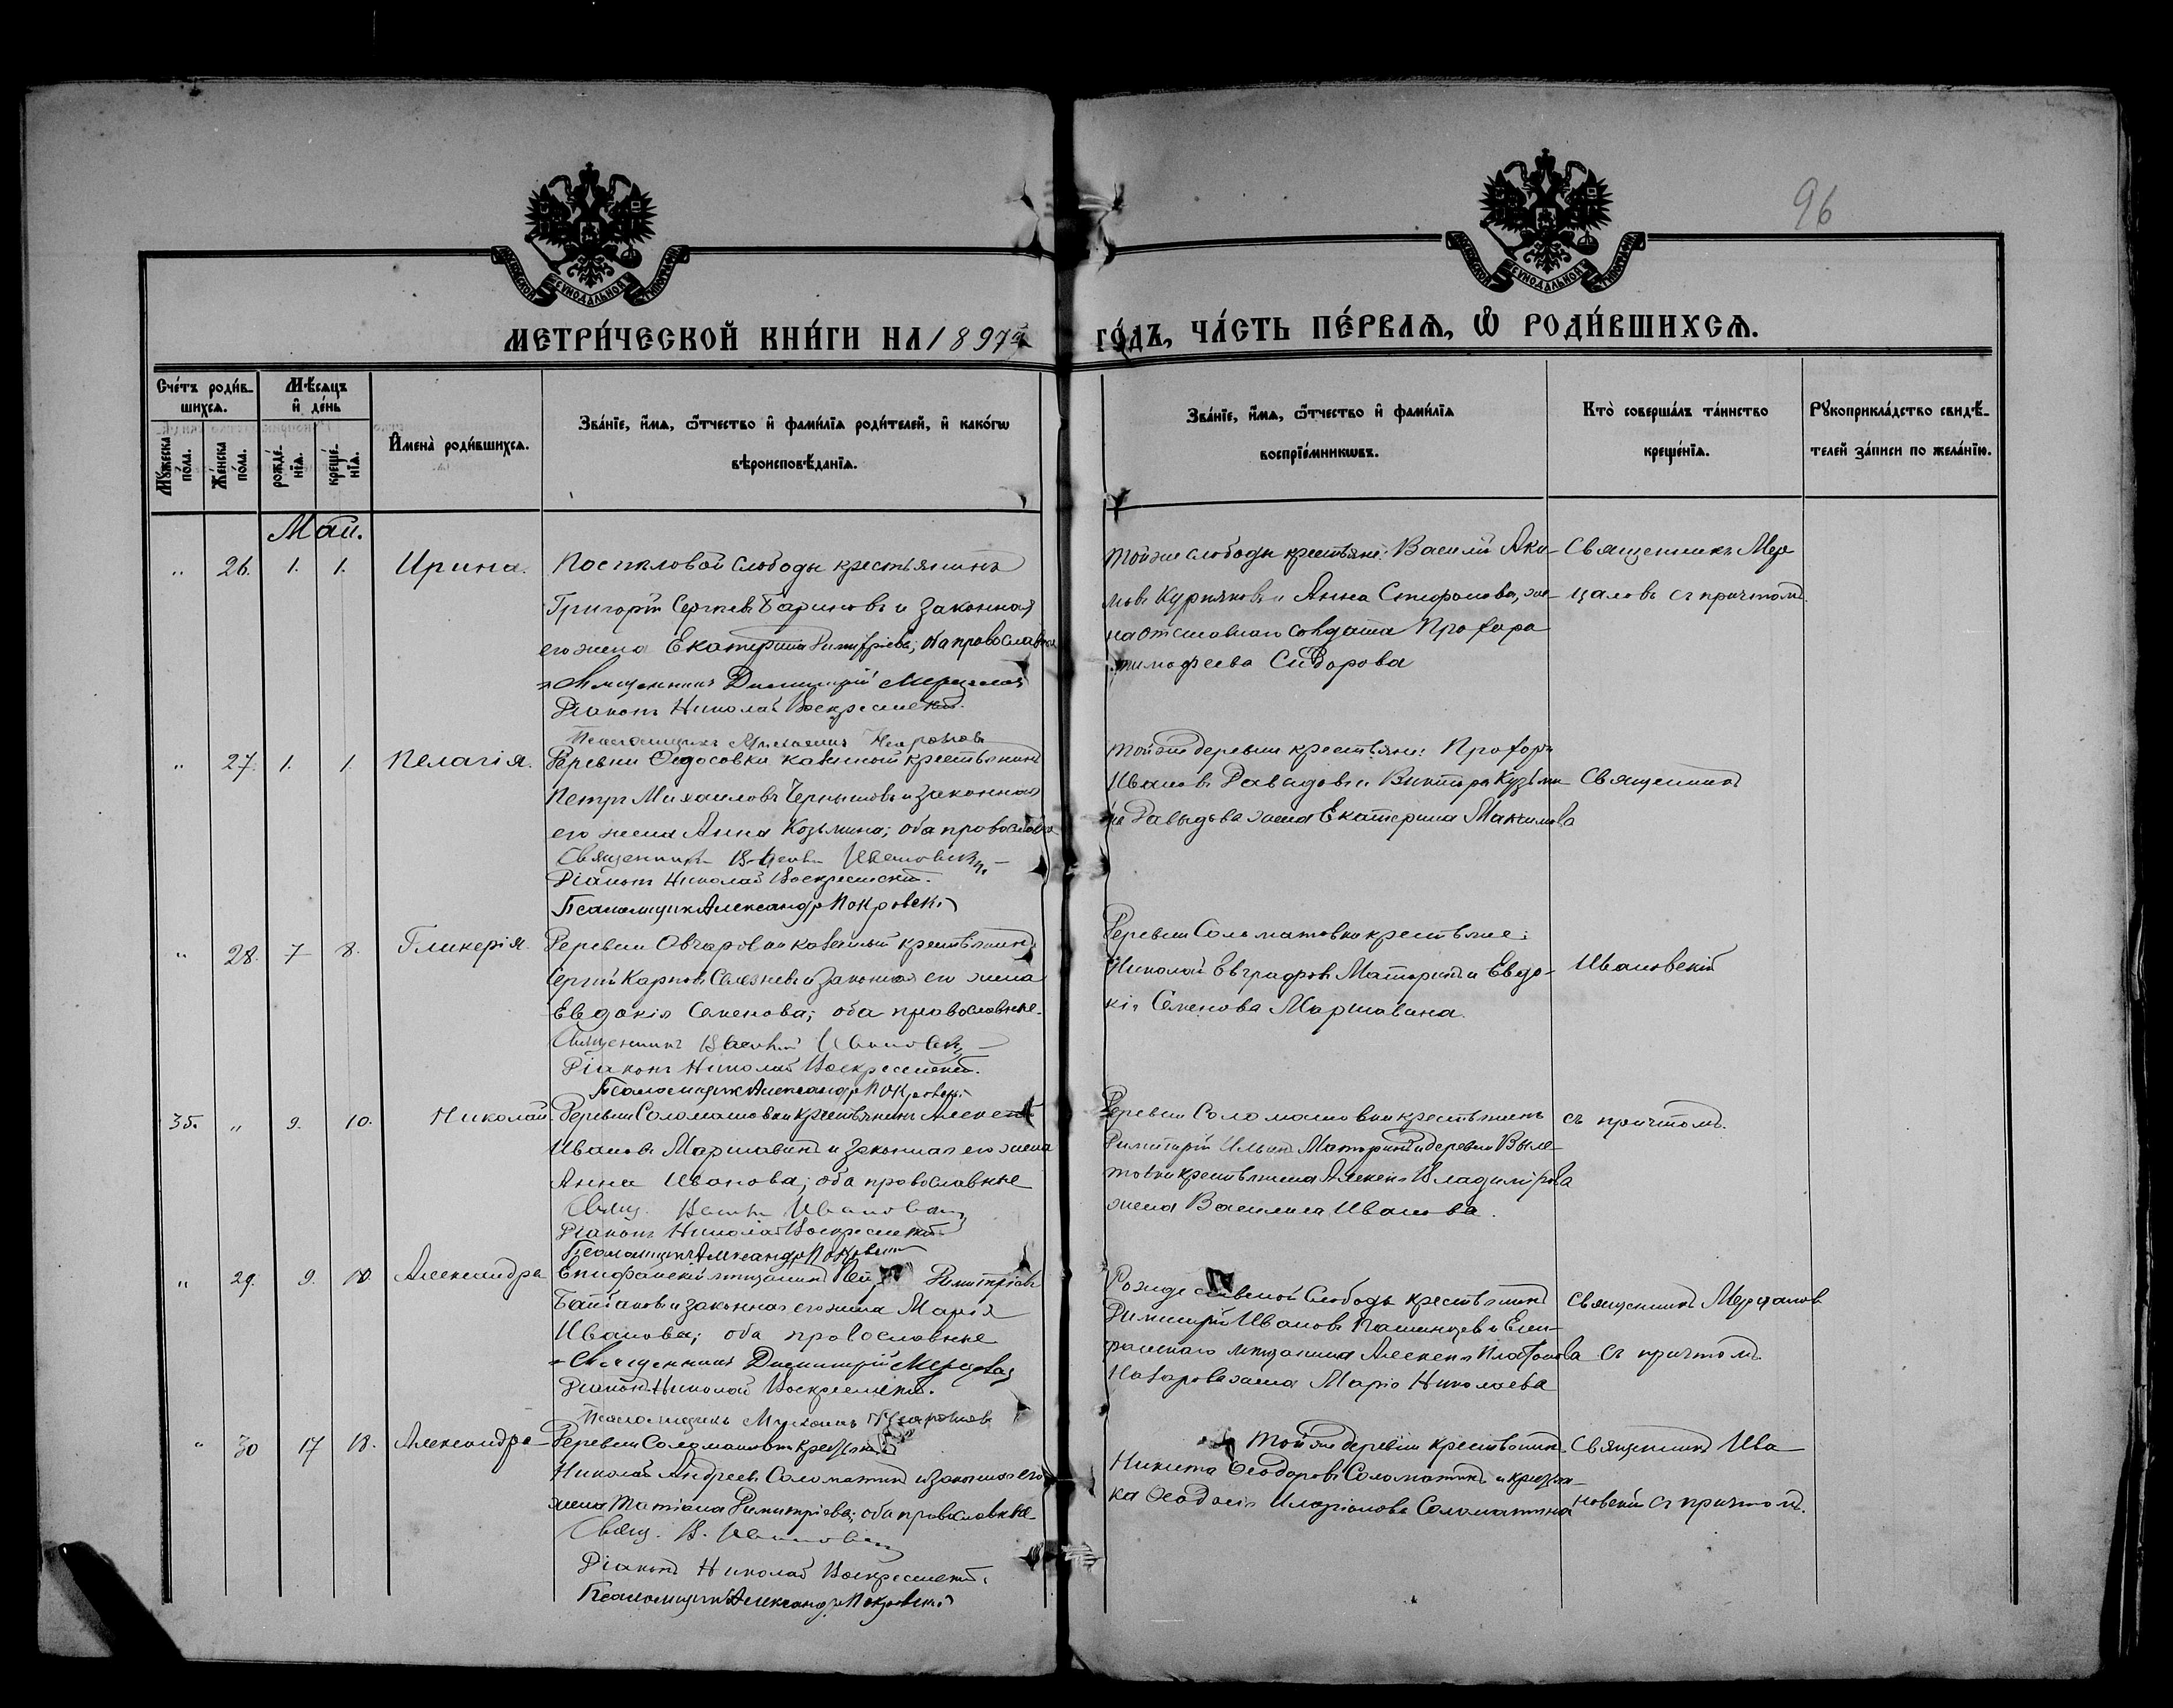 96
МЕТРИ́ЧЕСКОЙ КНИ́ГИ НА 1897й ГО́ДЪ, ЧА́СТЬ ПЕ́РВАѦ, Ѽ РОДИ́ВШИХСѦ.
Сче́тъ роди́в-
шихсѧ.
Мꙋжеска по́ла.
Же́нска по́ла.
Мѣ́сѧцъ и҆ де́нь
рожде́-
нїѧ.
креще́-
нїѧ.
И҆мена̀ роди́вшихсѧ.
Зва́нїе, и҆́мѧ, ѻ҆́тчество и҆ фами́лїѧ роди́телей, и҆ како́гѡ
вѣроисповѣ́данїѧ.
Зва́нїе, и҆́мѧ, ѻ҆́тчество и҆ фами́лїѧ
воспрїе́мникѡвъ.
Кто̀ соверша́лъ та́инство
креще́нїѧ.
Рꙋкоприкла́дство свидѣ́-
телей за́писи по жела́нїю.
Май.
" 26. 1. 1. Ирина.
Посткловой Слободы крестьянинъ
Григорій Сергѣевъ Бариновъ и законная
его жена Екатерина Димитріева; оба православные
Священникъ Димитрій Мерцаловъ
Діаконъ Николай Воскресенскій.
Псаломщикъ Михаилъ
Тойже слободы крестьяне: Василій Аки-
мовъ Куряковъ и Анна Стефанова, же-
на отставного солдата Прохора
Тимофеева Сидорова
Священникъ Мер
цаловъ съ причтомъ.
" 27. 1. 1. Пелагія.
Деревни Федосовки крестьянинъ
Петръ Михаиловъ Чернышовъ и законная
его жена Анна Козьмина; оба православные
Священникъ Ивановскій
Діаконъ Николай Воскресенскій.
Псаломщикъ Александръ Покровскій
Тойже деревни крестьяне: Прохоръ
Ивановъ Давыдовъ и Виктора Кузьми-
на Давыдова жена Екатерина Максимова
Священникъ
" 28. 7 8. Гликерія.
Деревни Овчаровки крестьянинъ
Сергій Карповъ Селезневъ и законная его жена
Евдокія Семенова; оба православные.
Священникъ Ивановскій
Діаконъ Николай Воскресенскій.
Псаломщикъ Александръ Покровскій
Деревни Соломатовки крестьяне:
Николай Евграфовъ Маторинъ и Евдо-
кія Семенова Маршавина.
Ивановскій
35. " 9. 10. Николай.
Деревни Соломатовки крестьянинъ Алексѣй
Ивановъ Маршавинъ и законная его жена
Анна Иванова; оба православные
Свящ. Ивановскій
Діаконъ Николай Воскресенскій.
Псаломщикъ Александръ Покровскій
Деревни Соломатовки крестьянинъ
Димитрій Ильинъ Маторинъ и деревни Выле-
крестьянина Алексѣя Владимірова
жена Василиса Иванова.
съ причтомъ.
" 29. 9. 10. Александра
Епифанскій мѣщанинъ Димитріевъ
и законная его жена Марія
Иванова; оба православные
Священникъ Димитрій Мерцаловъ
Діаконъ Николай Воскресенскій.
Псаломщикъ Михаилъ
Рождественой Слободы крестьянинъ
Димитрій Ивановъ и Епи-
фанскаго мѣщанина Алексѣя Платонова
жена Марія Николаева
Священникъ Мерцаловъ
съ причтомъ.
" 30 17 18. Александра
Деревни Соломатовки крестьянинъ
Николай Андреевъ Соломатинъ и законная его
жена Татіана Димитріева; оба православные.
Свящ. В. Ивановскій
Діаконъ Николай Воскресенскій.
Псаломщикъ Александръ Покровскій
Тойже деревни крестьянинъ
Никита Ѳеодоровъ Соломатинъ и крестьян-
ка Ѳеодосія Иларіонова Соломатина
Священникъ Ива
новскій съ причтомъ.